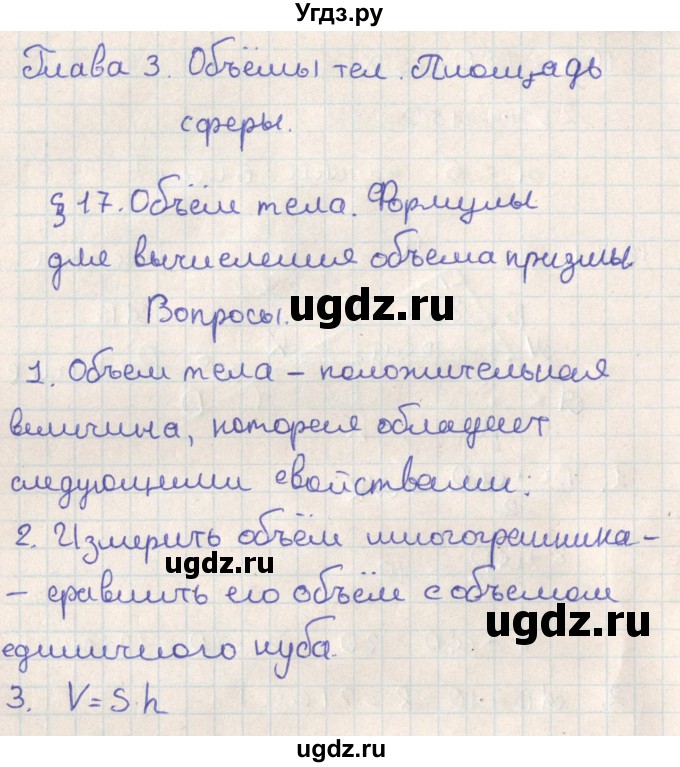 Угдз.ру
Глава 3. Объёмы тел. Площадь
сферы.
§ 17. Объём тела. Формулы
для вычисления объема призмы
Вопросы.
ugdz.ru
1. Объем тела – положительная
величина, которая обладает
следующими свойствами:
2. Измерить объём многогранника –
ugdz.ru
– сравнить его объём с объемом
ugdz.ru
единичного куба.
3. V = S h
ugdz.ru